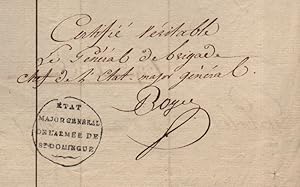 Certifié véritable
Le Général de brigade
chef de l'Etat major général.
Boyer
ETAT
MAJOR GENERAL
DE L'ARMÉE DE
ST DOMINGUE